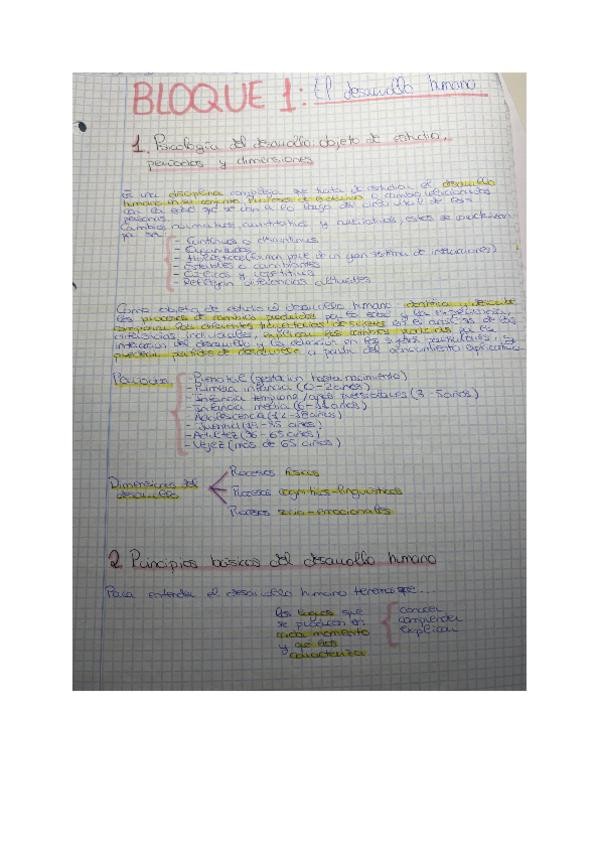 BLOQUE 1: El desarrollo humano
1. Psicología del desarrollo: objeto de estudio,
periodos y dimensiones
Es una disciplina compleja que trata de estudiar el desarrollo
humano en su conjunto, procesos de cambio relacionados
con la edad que se dan a lo largo del de las
personas.
Cambios normativos, cuantitativos y cualitativos, estos se caracterizan
por ser:
- Continuos o discontinuos
- Organizados
- Holísticos (forman parte de un gran sistema de interacciones)
- Estables o cambiantes
- y repetitivos
- Reflejan diferencias culturales
Como objeto de estudio el desarrollo humano identifica y describe
los procesos de cambio producidos por la edad y las experiencias,
comparar las diferentes trayectorias de sujetos así el análisis de las
diferencias individuales, explicar los cambios por la
interacción del desarrollo y los en los sujetos particulares, y
predecir pautas de conducta a partir del conocimiento explicativo
Periodos
- Prenatal (gestación hasta nacimiento)
- Primera infancia (0-2 años)
- Infancia temprana / años preescolares (3-5 años)
- Infancia media (6-11 años)
- Adolescencia (12-18 años)
- Juventud (18-35 años)
- Adultez (36-65 años)
- Vejez (más de 65 años)
Dimensiones del
desarrollo
Procesos físicos
Procesos cognitivos-lingüísticos
Procesos socio-emocionales
2 Principios básicos del desarrollo humano
Para entender el desarrollo humano tenemos que...
los logros que
se producen en
cada momento
y que los
caracteriza
conocer
comprender
explicar